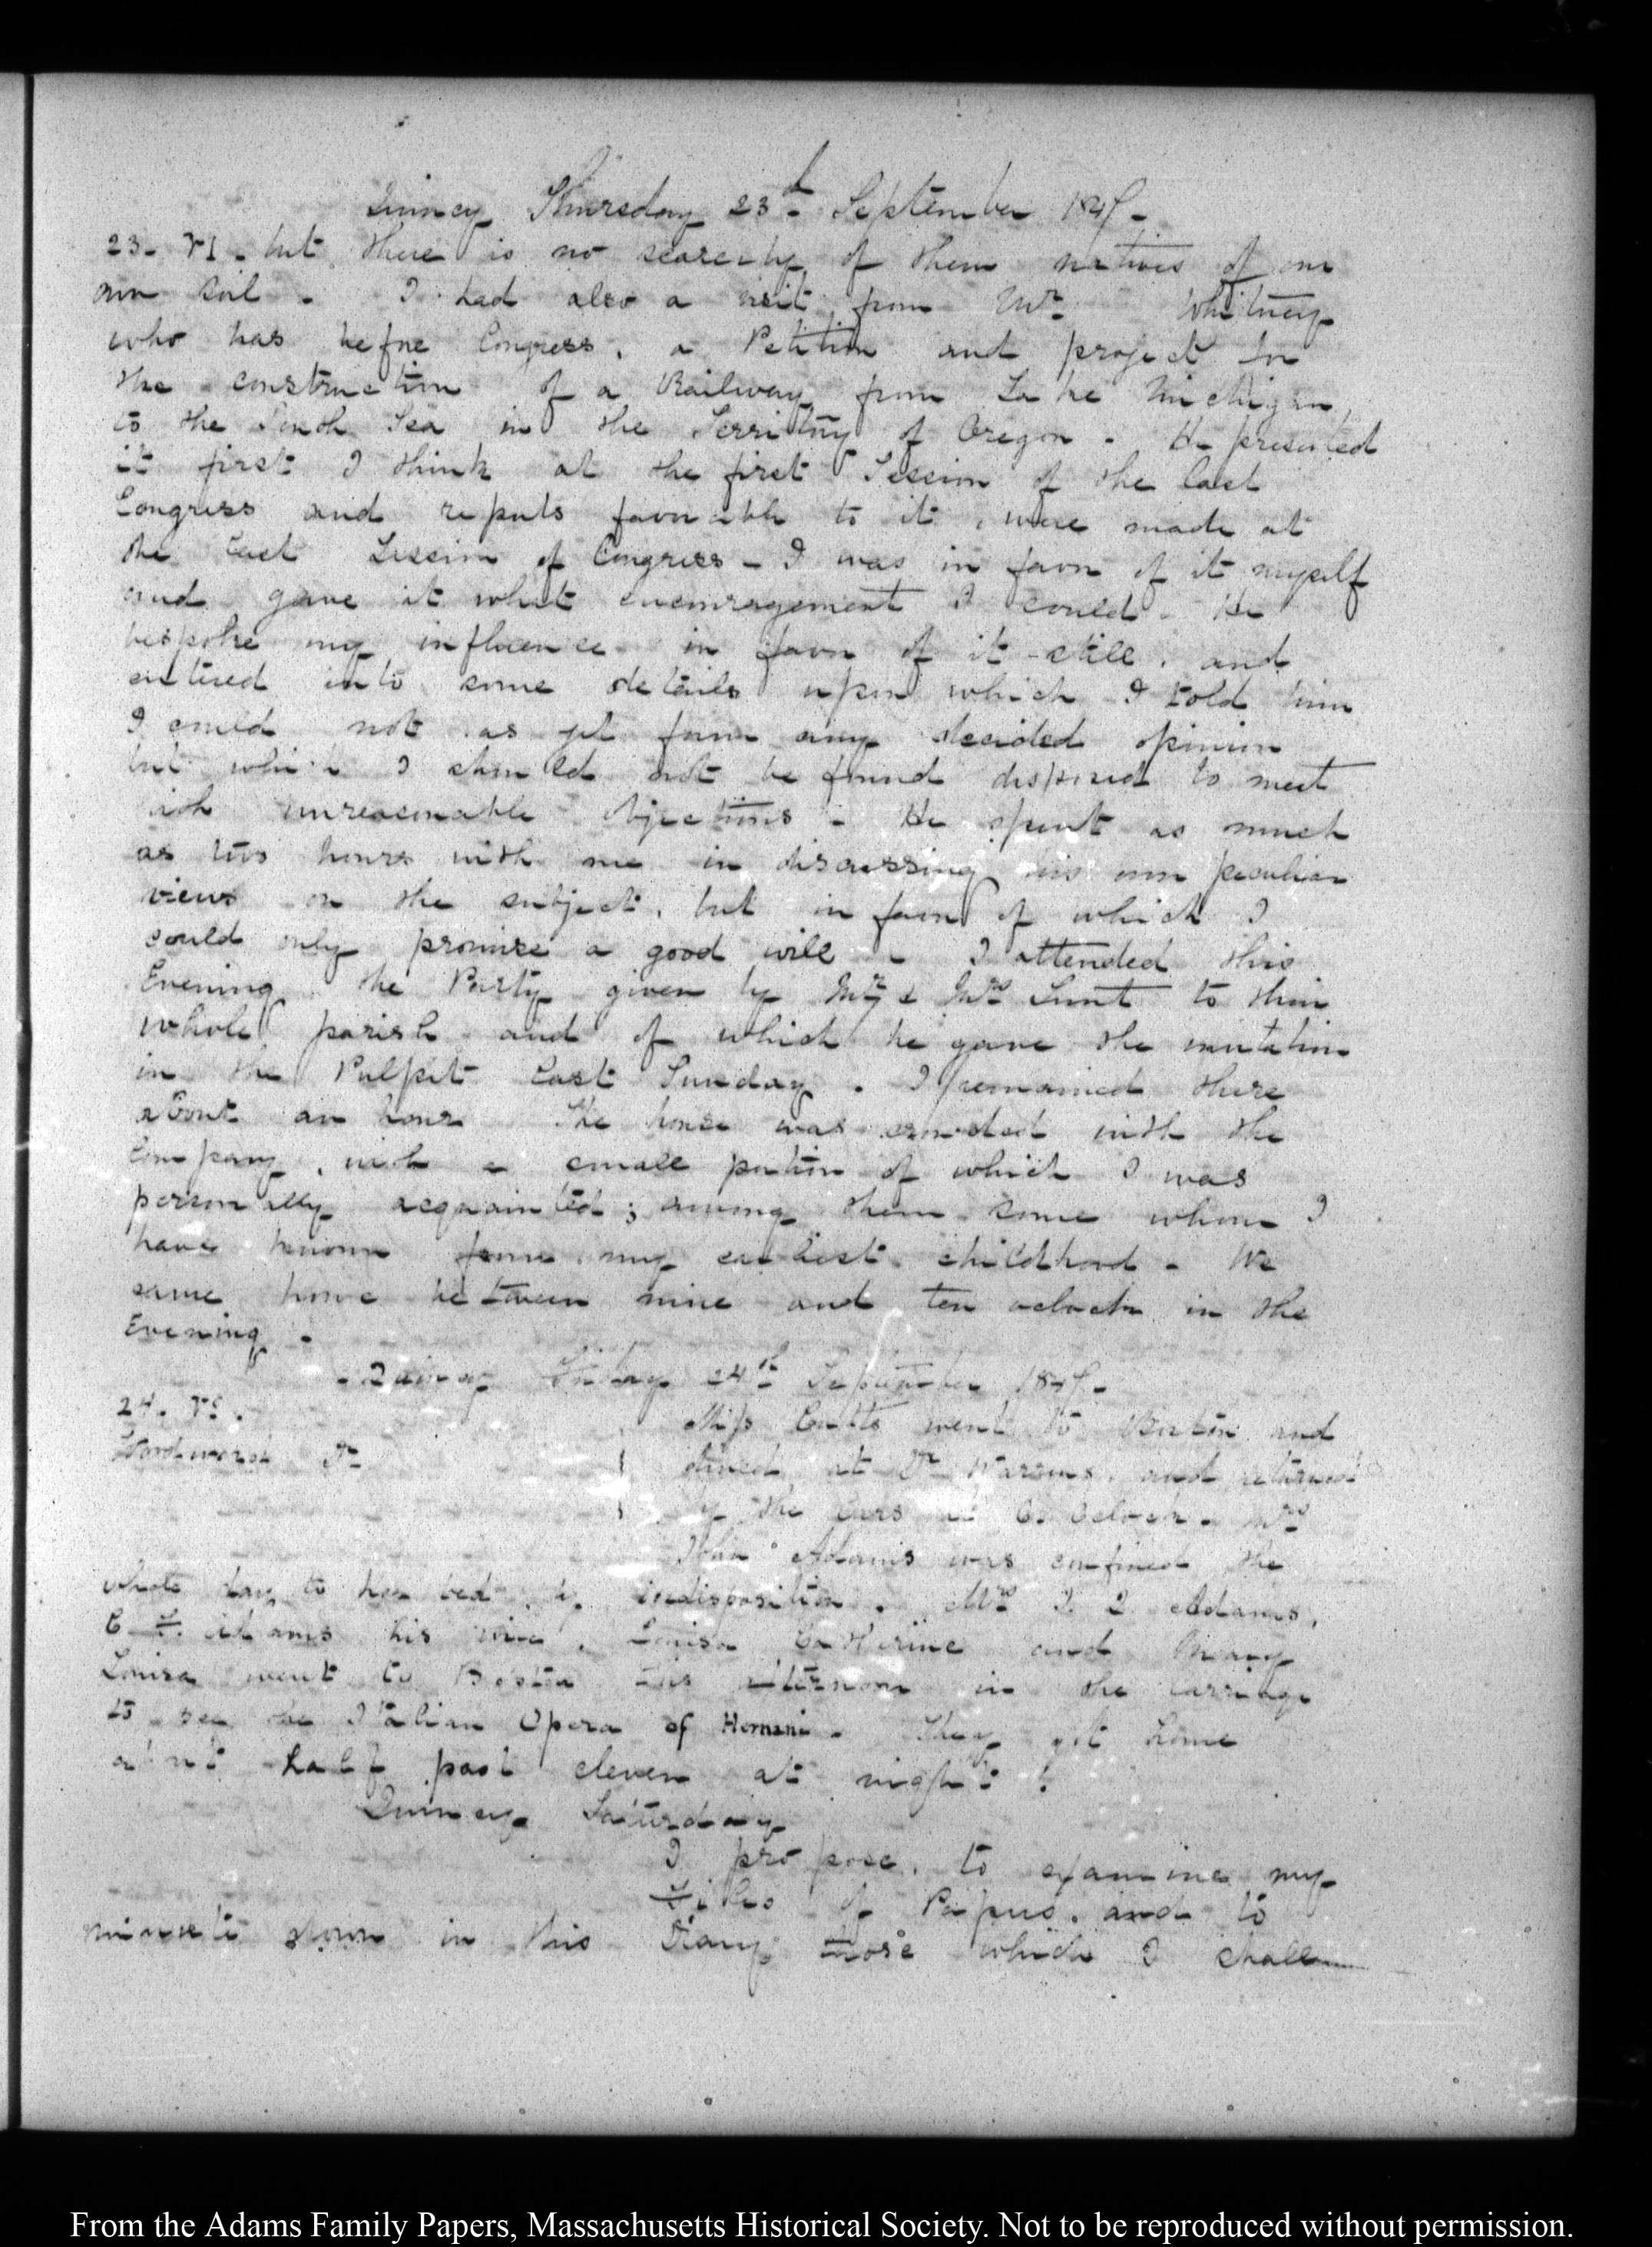 Quincy Thursday 23d. September 1847.
23. VI. but there is no scarcity of them natives of our
own soil. I had also a visit from Mr. Whitney
who has before Congress, a Petition and project for
the construction of a Railway from Lake Michigan,
to the South Sea in the Territory of Oregon. He presented
it first I think at the first Session of the last
Congress and reports favorable to it, were made at
the last Session of Congress - I was in favor of it myself
and gave it what encouragement I could. He
bespoke my influence in favor of it still, and
entered into some details upon which I told him
I could not as yet form any decided opinion
but which I should not be found disposed to meet
with unreasonable objections. He spent as much
as two hours with me in discussing his own peculiar
views on the subject, but in favor of which I
could only promise a good will - I attended this
Evening the Party given by Mr. & Mrs Lunt to their
whole parish and of which he gave the invitation
in the Pulpit last Sunday. I remained there
about an hour The house was crowded with the
Company, with a small portion of which I was
personally acquainted; among them some whom I
have known from my earliest childhood. We
came home between nine and ten oclock in the
Evening.
Quincy Friday 24th September 1847.
24.
Miss Cutts went to Boston and
dined at Dr Warrens, and returned
by the Cars at 6. Oclock. Mrs
John Adams was confined the
whole day to her bed, by indisposition. Mrs J. Q. Adams,
C. F. Adams his wife, Louisa Catherine and Mary
Louisa went to Boston this afternoon in the carriage
to see the Italian Opera of Hernani. They got home
about half past eleven at night.
Quincy Saturday
I propose, to examine my
Files of Papers, and to
minute down in this Diary those which I shall
From the Adams Family Papers, Massachusetts Historical Society. Not to be reproduced without permission.